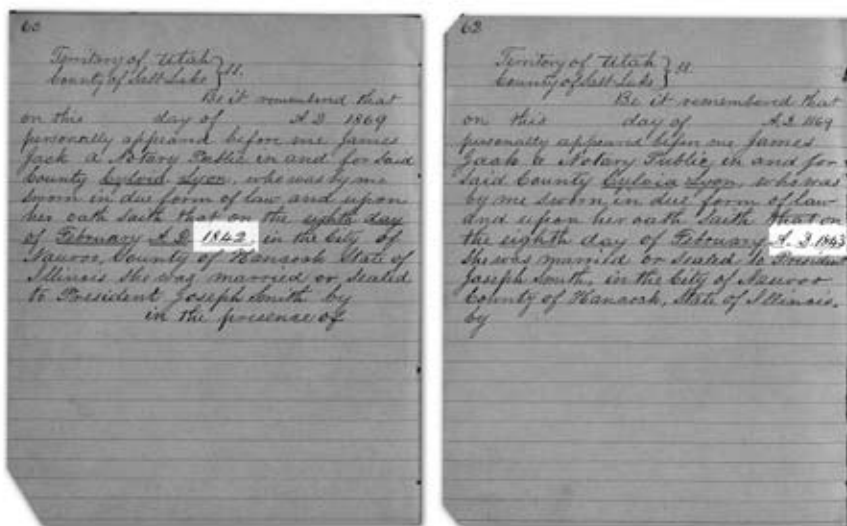 60
Territory of Utah } ss.
County of Salt Lake
Be it remembered that
on this day of A.D. 1869
personally appeared before me James
Jack a Notary Public in and for said
County Sylvia Lyon, who was by me
sworn in due form of law, and upon
her oath saith that on the eighth day
of February A.D. 1842, in the City of
Nauvoo, County of Hancock State of
Illinois she was married or sealed
to President Joseph Smith by
in the presence of
62
Territory of Utah } ss
County of Salt Lake
Be it remembered that
on this day of A.D. 1869
personally appeared before me James
Jack a Notary Public in and for
said County Sylvia Lyon, who was
by me sworn, in due form of law
and upon her oath saith that on
the eighth day of February A.D. 1843
she was married or sealed to President
Joseph Smith, in the City of Nauvoo
County of Hancock, State of Illinois.
by